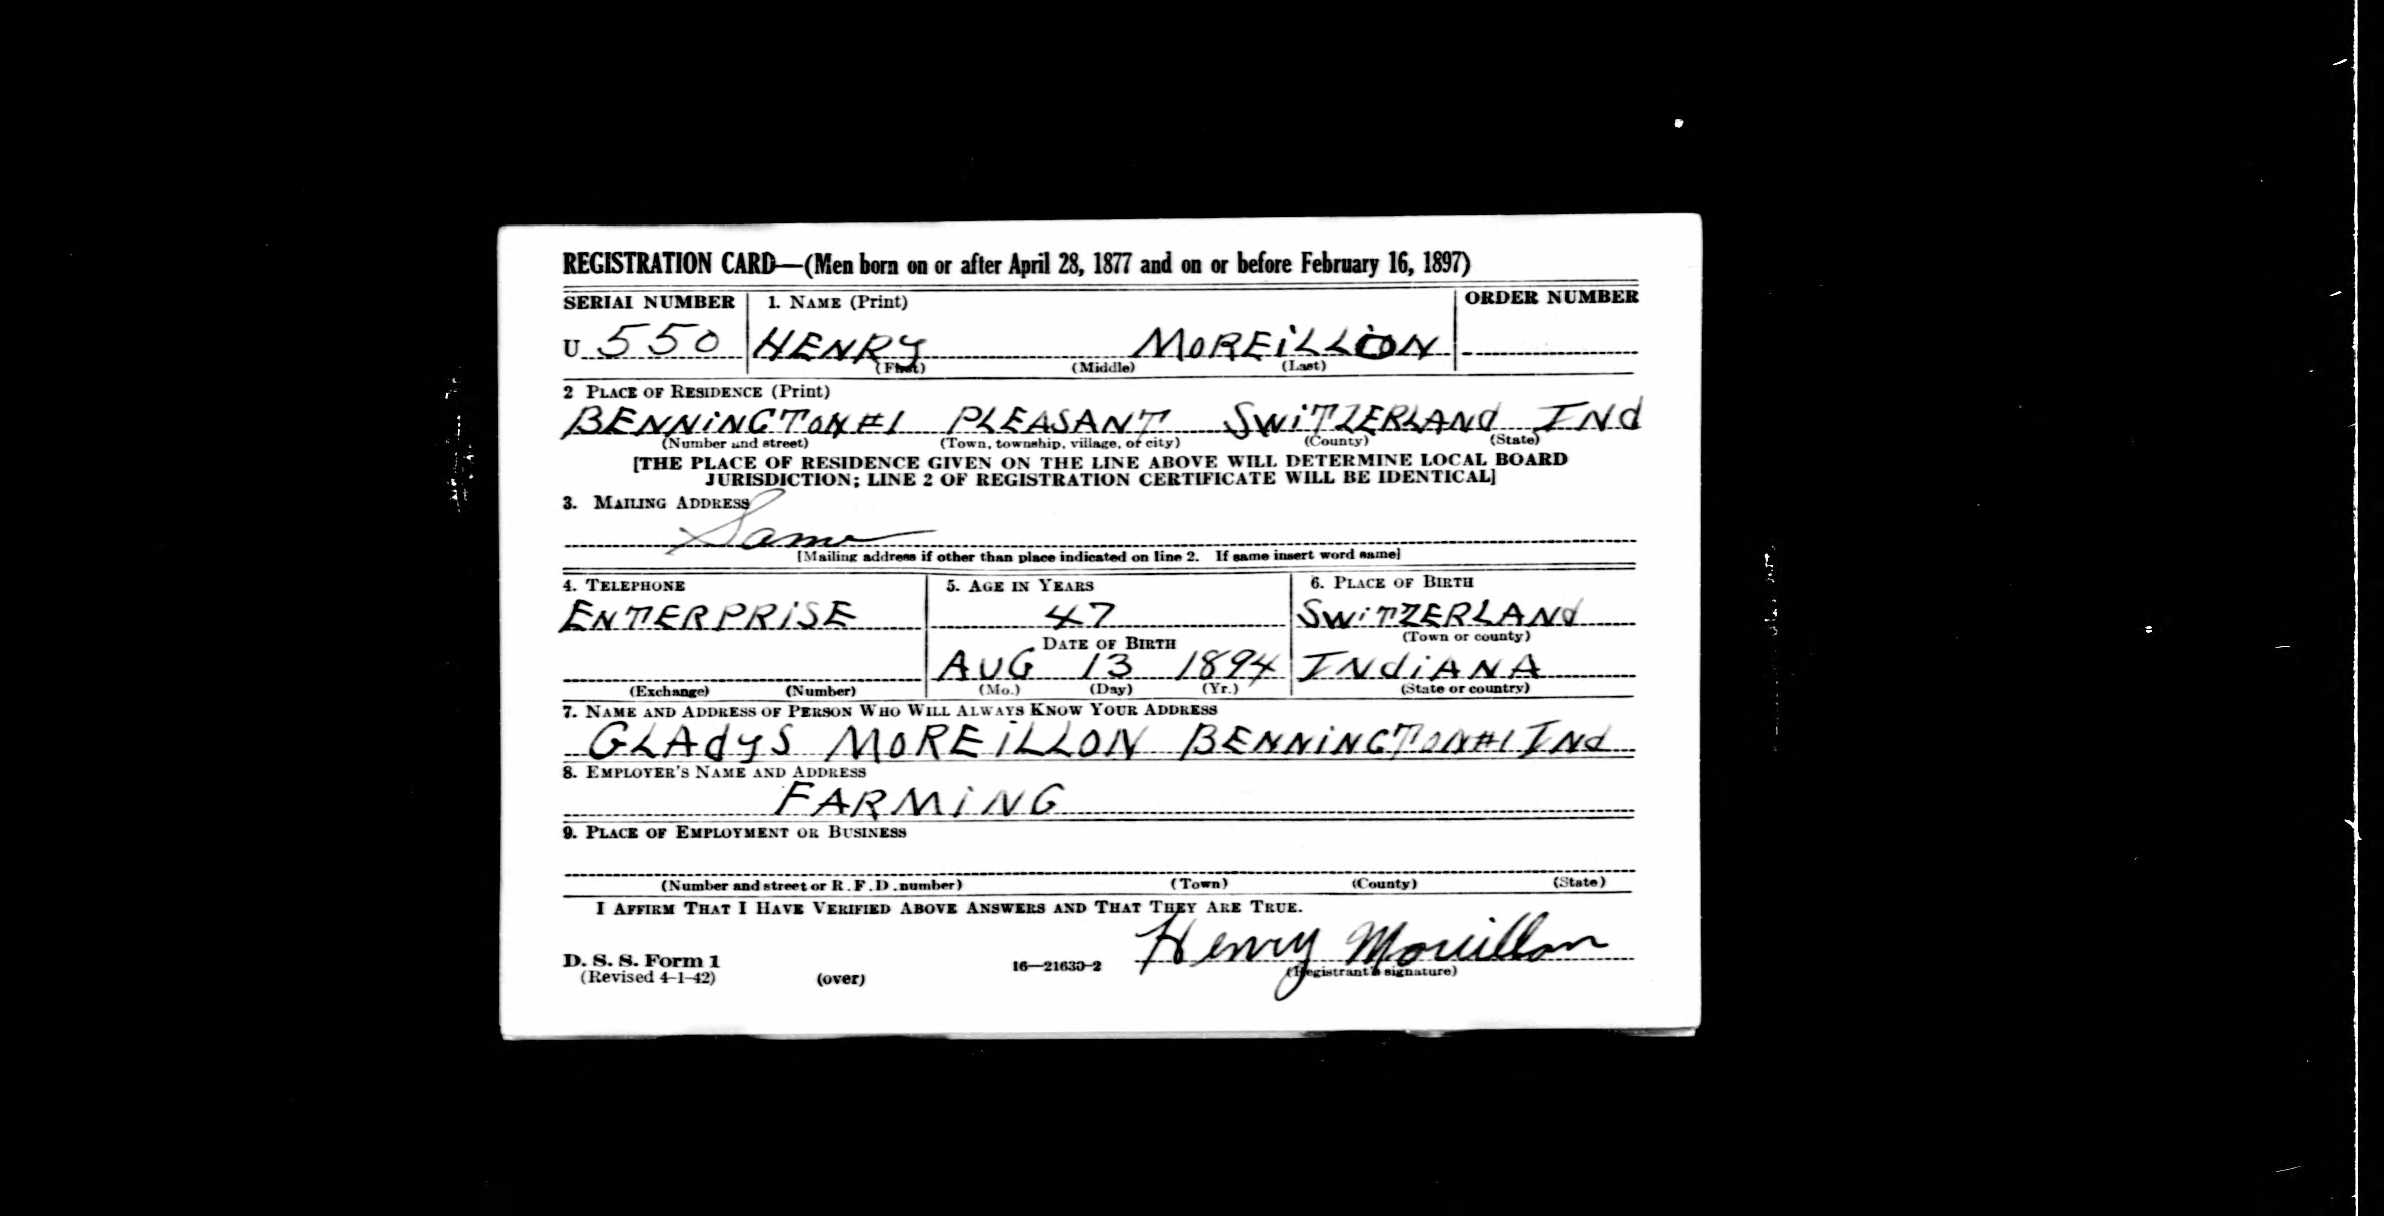 REGISTRATION CARD—(Men born on or after April 28, 1877 and on or before February 16, 1897)
SERIAL NUMBER 1. NAME (Print) ORDER NUMBER
U 550 HENRY MOREiLLON
(First) (Middle) (Last)
2 PLACE OF RESIDENCE (Print)
BENNiNGTON #1 PLEASANT SWiTZERLANd INd
(Number and street) (Town, township, village, or city) (County) (State)
[THE PLACE OF RESIDENCE GIVEN ON THE LINE ABOVE WILL DETERMINE LOCAL BOARD
JURISDICTION; LINE 2 OF REGISTRATION CERTIFICATE WILL BE IDENTICAL]
3. MAILING ADDRESS
Same
[Mailing address if other than place indicated on line 2. If same insert word same]
4. TELEPHONE 5. AGE IN YEARS 6. PLACE OF BIRTH
ENTERPRiSE 47 SWiTZERLANd
DATE OF BIRTH (Town or county)
AUG 13 1894 INdiANA
(Exchange) (Number) (Mo.) (Day) (Yr.) (State or country)
7. NAME AND ADDRESS OF PERSON WHO WILL ALWAYS KNOW YOUR ADDRESS
GLAdyS MOREiLLON BENNiNGTON #1 INd
8. EMPLOYER'S NAME AND ADDRESS
FARMiNG
9. PLACE OF EMPLOYMENT OR BUSINESS
(Number and street or R.F.D. number) (Town) (County) (State)
I AFFIRM THAT I HAVE VERIFIED ABOVE ANSWERS AND THAT THEY ARE TRUE.
Henry Moreillon
D. S. S. Form 1 16—21630-2 (Registrant's signature)
(Revised 4-1-42) (over)